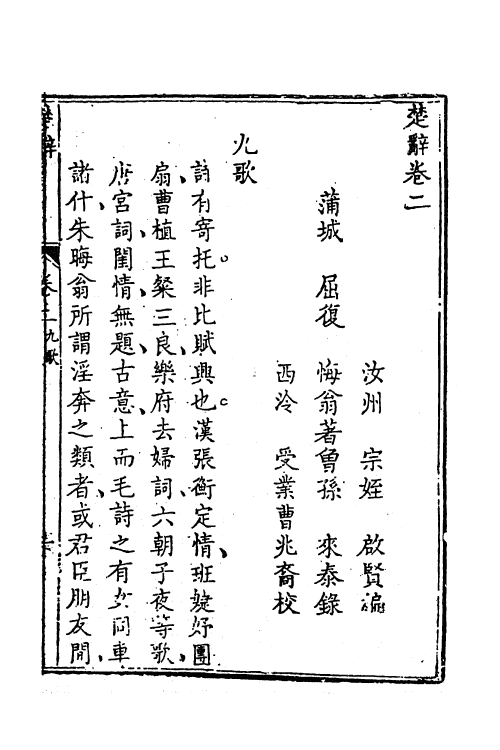 楚辭卷二
汝州　宗姪　啟賢編
蒲城　屈復　悔翁著曾孫　來泰錄
西泠　受業曹兆裔校
九歌
詩有寄托非比賦興也漢張衡定情班婕妤團
扇曹植王粲三良樂府去婦詞六朝子夜等歌
唐宮詞閨情無題古意上而毛詩之有女同車
諸什朱晦翁所謂淫奔之類者或君臣朋友間
楚辭
卷二九歌